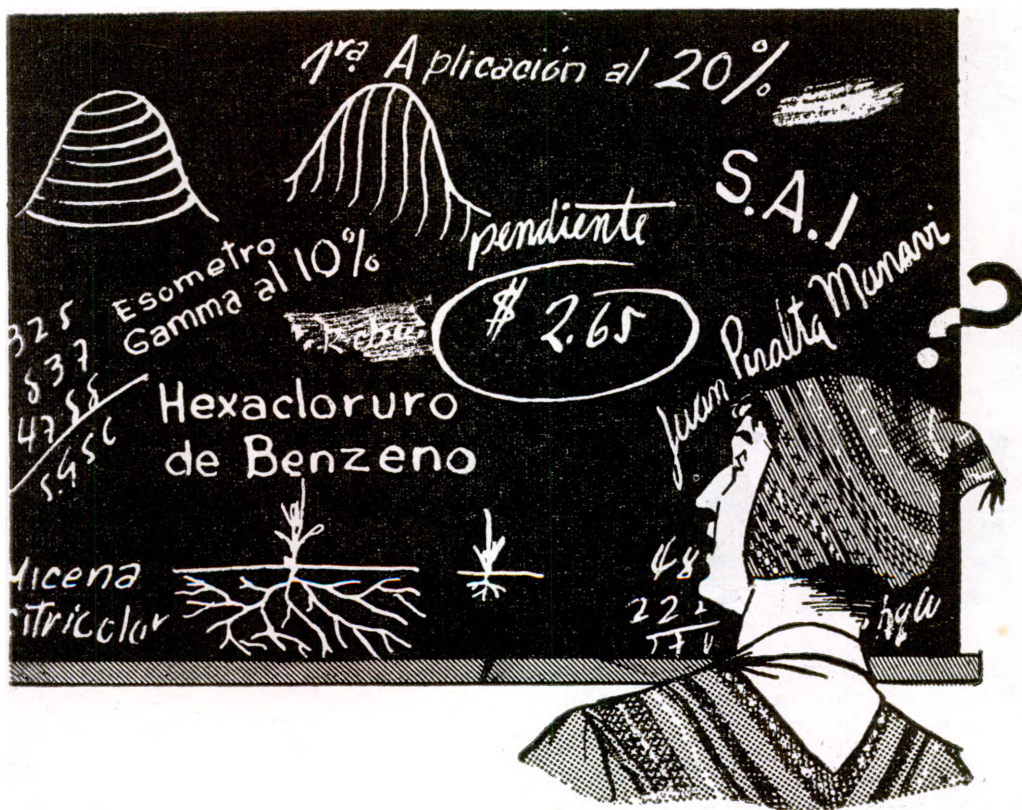 1ra Aplicación al 20%
S.A.I
pendiente
Esometro
Gamma al 10%
$ 2.65
Juan Peralta Manavi
?
325
537
Hexacloruro
de Benzeno
Micena
Citricolor
48